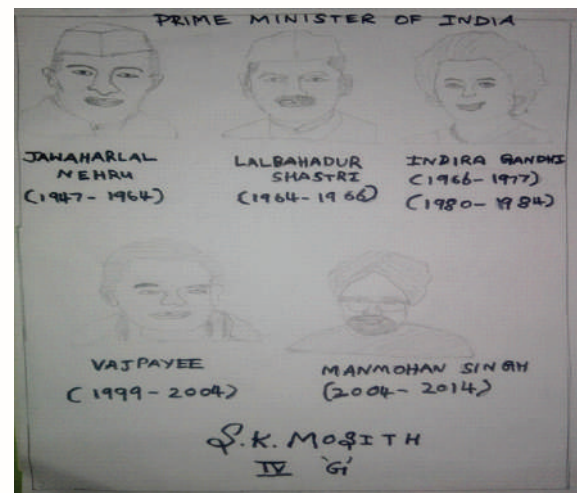 PRIME MINISTER OF INDIA
JAWAHARLAL
NEHRU
(1947-1964)
LALBAHADUR
SHASTRI
(1964-1966)
INDIRA GANDHI
(1966-1977)
(1980-1984)
VAJPAYEE
(1999-2004)
MANMOHAN SINGH
(2004-2014)
S.K. MOSITH
IV 'G'